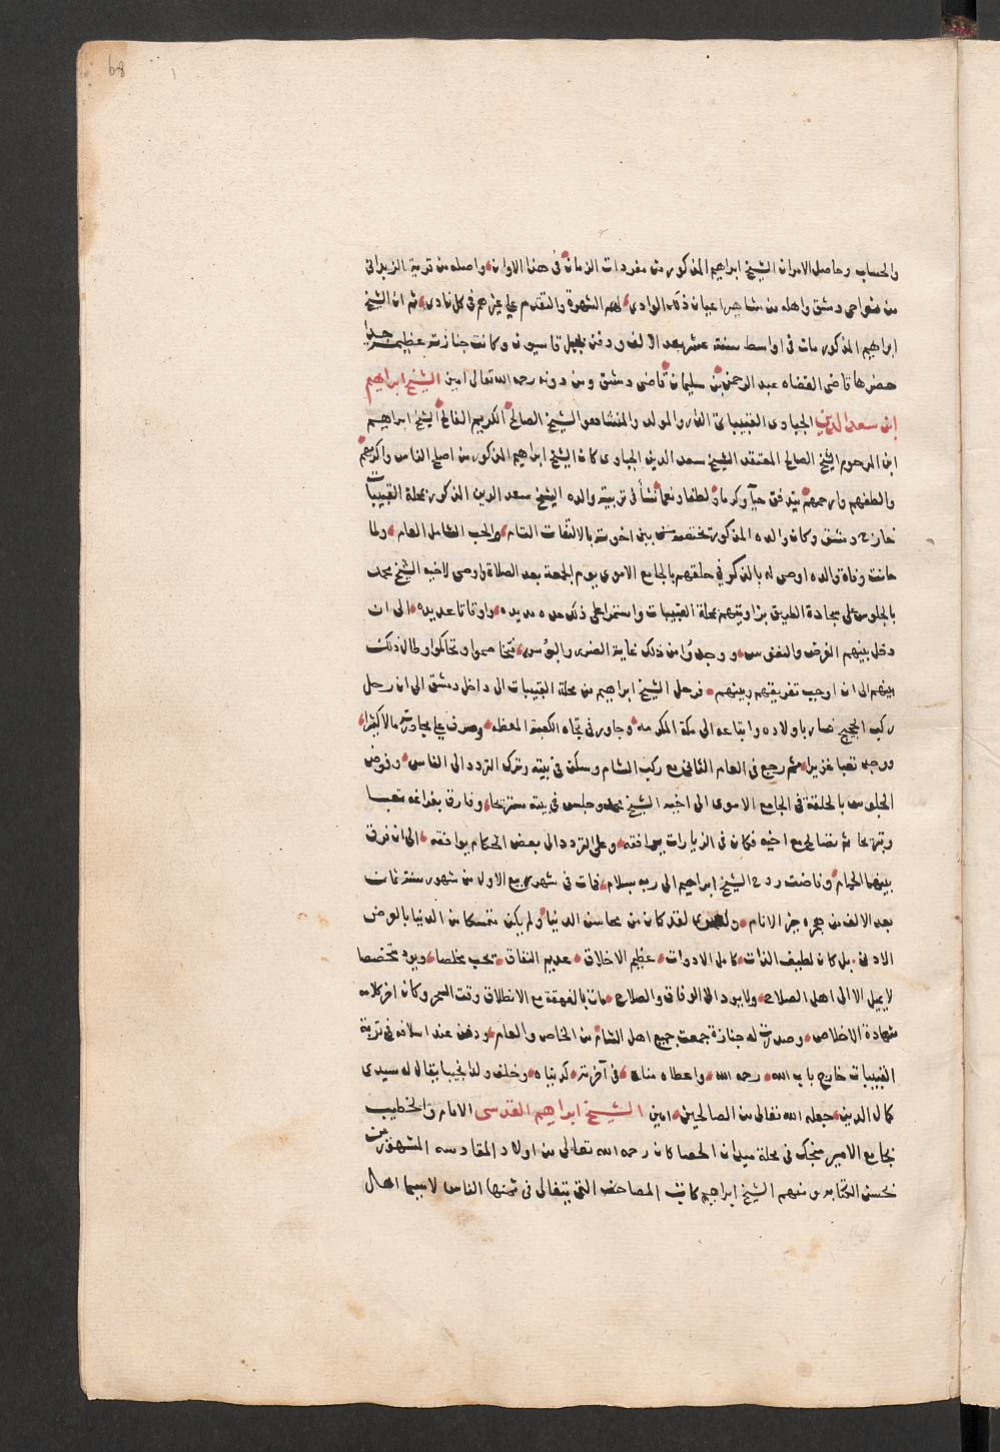 68
والحساب وحاصل الامر ان الشيخ ابراهيم المذكور من مفردات الزمان في هذا الاوان واصله من قرية الزبداني
من ضواحي دمشق واهله من مشاهير اعيان ذلك الوادي لهم الشهرة والتقدم علي غيرهم في كل نادي ثم ان الشيخ
ابراهيم المذكور مات في اواسط سنة عشر بعد الالف ودفن بجبل قاسيون وكانت جنازته عظيمة جدا
حضرها قاضي القضاه عبد الرحمن بن سليمان قاضي دمشق ومن دونه رحمه الله تعالى امين الشيخ ابراهيم
ابن سعد الدين الجباوي القبيباتي الدار والمولد والمنشا هو الشيخ الصالح الكريم الفالح الشيخ ابراهيم
ابن المرحوم الشيخ الصالح المعتقد الشيخ سعد الدين الجباوي كان الشيخ ابراهيم المذكور من اصلح الناس واكرمهم
والطفهم وارحمهم يتدفق حيآ وكرما ولطفا ونعما نشأ في تربية والده الشيخ سعد الدين المذكور بمحلة القبيبات
خارج دمشق وكان والده المذكور يختصه من بين اخوته بالالتفات التام والحب الشامل العام ولما
حانت وفاة والده اوصى له بالذكر في حلقتهم بالجامع الاموي يوم الجمعة بعد الصلاة واوصى لاخيه الشيخ محمد
بالجلوس على سجادة الطريق بزاويتهم بمحلة القبيبات واستمرا على ذلك مده مديده واوقاتا عديده الى ان
دخل بينهم الغرض والنفوس ووجدوا من ذلك غاية الضرر والبؤس فتخاصموا وتحاكموا وطال ذلك
بينهم الى ان اوجب تفريقهم وبينهم فرحل الشيخ ابراهيم من محلة القبيبات الى داخل دمشق الى ان رحل
ركب الحجيج فسار باولاده واتباعه الى مكة المكرمه وجاور في تجاه الكعبة المعظمه وصرف علي مجاورته مالا كثيرا
ووجد تعبا غزيرا ثم رجع في العام الثاني مع ركب الشام وسكن في بيته وترك التردد الى الناس وفوض
الجلوس بالحلقة في الجامع الاموي الى اخيه الشيخ محمد وجلس في بيته مستريحا وفارق بفراغه تعبا
وتبريحا ثم تصالح مع اخيه فكان في الزيارات يوافقه وعلى التردد الى بعض الحكام يوافقه الى ان فرق
بينهما الحمام وفاضت روح الشيخ ابراهيم الى ربه بسلام فمات في شهر ربيع الاول من شهور سنة ثمان
بعد الالف من هجره خير الانام ولعمري لقد كان من محاسن الدنيا ولم يكن متمسكا من الدنيا بالعرض
الادنى بل كان لطيف الذات كامل الادوات عظيم الاخلاق عديم النفاق تحب مخلصا ويود مختصا
لا يميل الا الى اهل الصلاح ولا يود الا الوفاق والصلاح مات بالفهقة مع الانطلاق وقت السحر وكان اخر كلامه
شهادة الاخلاص وصدرت له جنازة جمعت جميع اهل الشام من الخاص والعام ودفن عند اسلافه في تربة
القبيبات خارج باب الله رحمه الله واعطاه مناه في آخرته كدنياه وخلف ولدا نجيبا يقال له سيدي
كمال الدين جعله الله تعالى من الصالحين امين الشيخ ابراهيم القدسي الامام والخطيب
بجامع الامير منجك في محلة ميدان الحصا كان رحمه الله تعالى من اولاد المقادسه المشهورين
بحسن الكتابه ومنهم الشيخ ابراهيم كاتب المصاحف التي يتغالى في ثمنها الناس لا سيما اهال